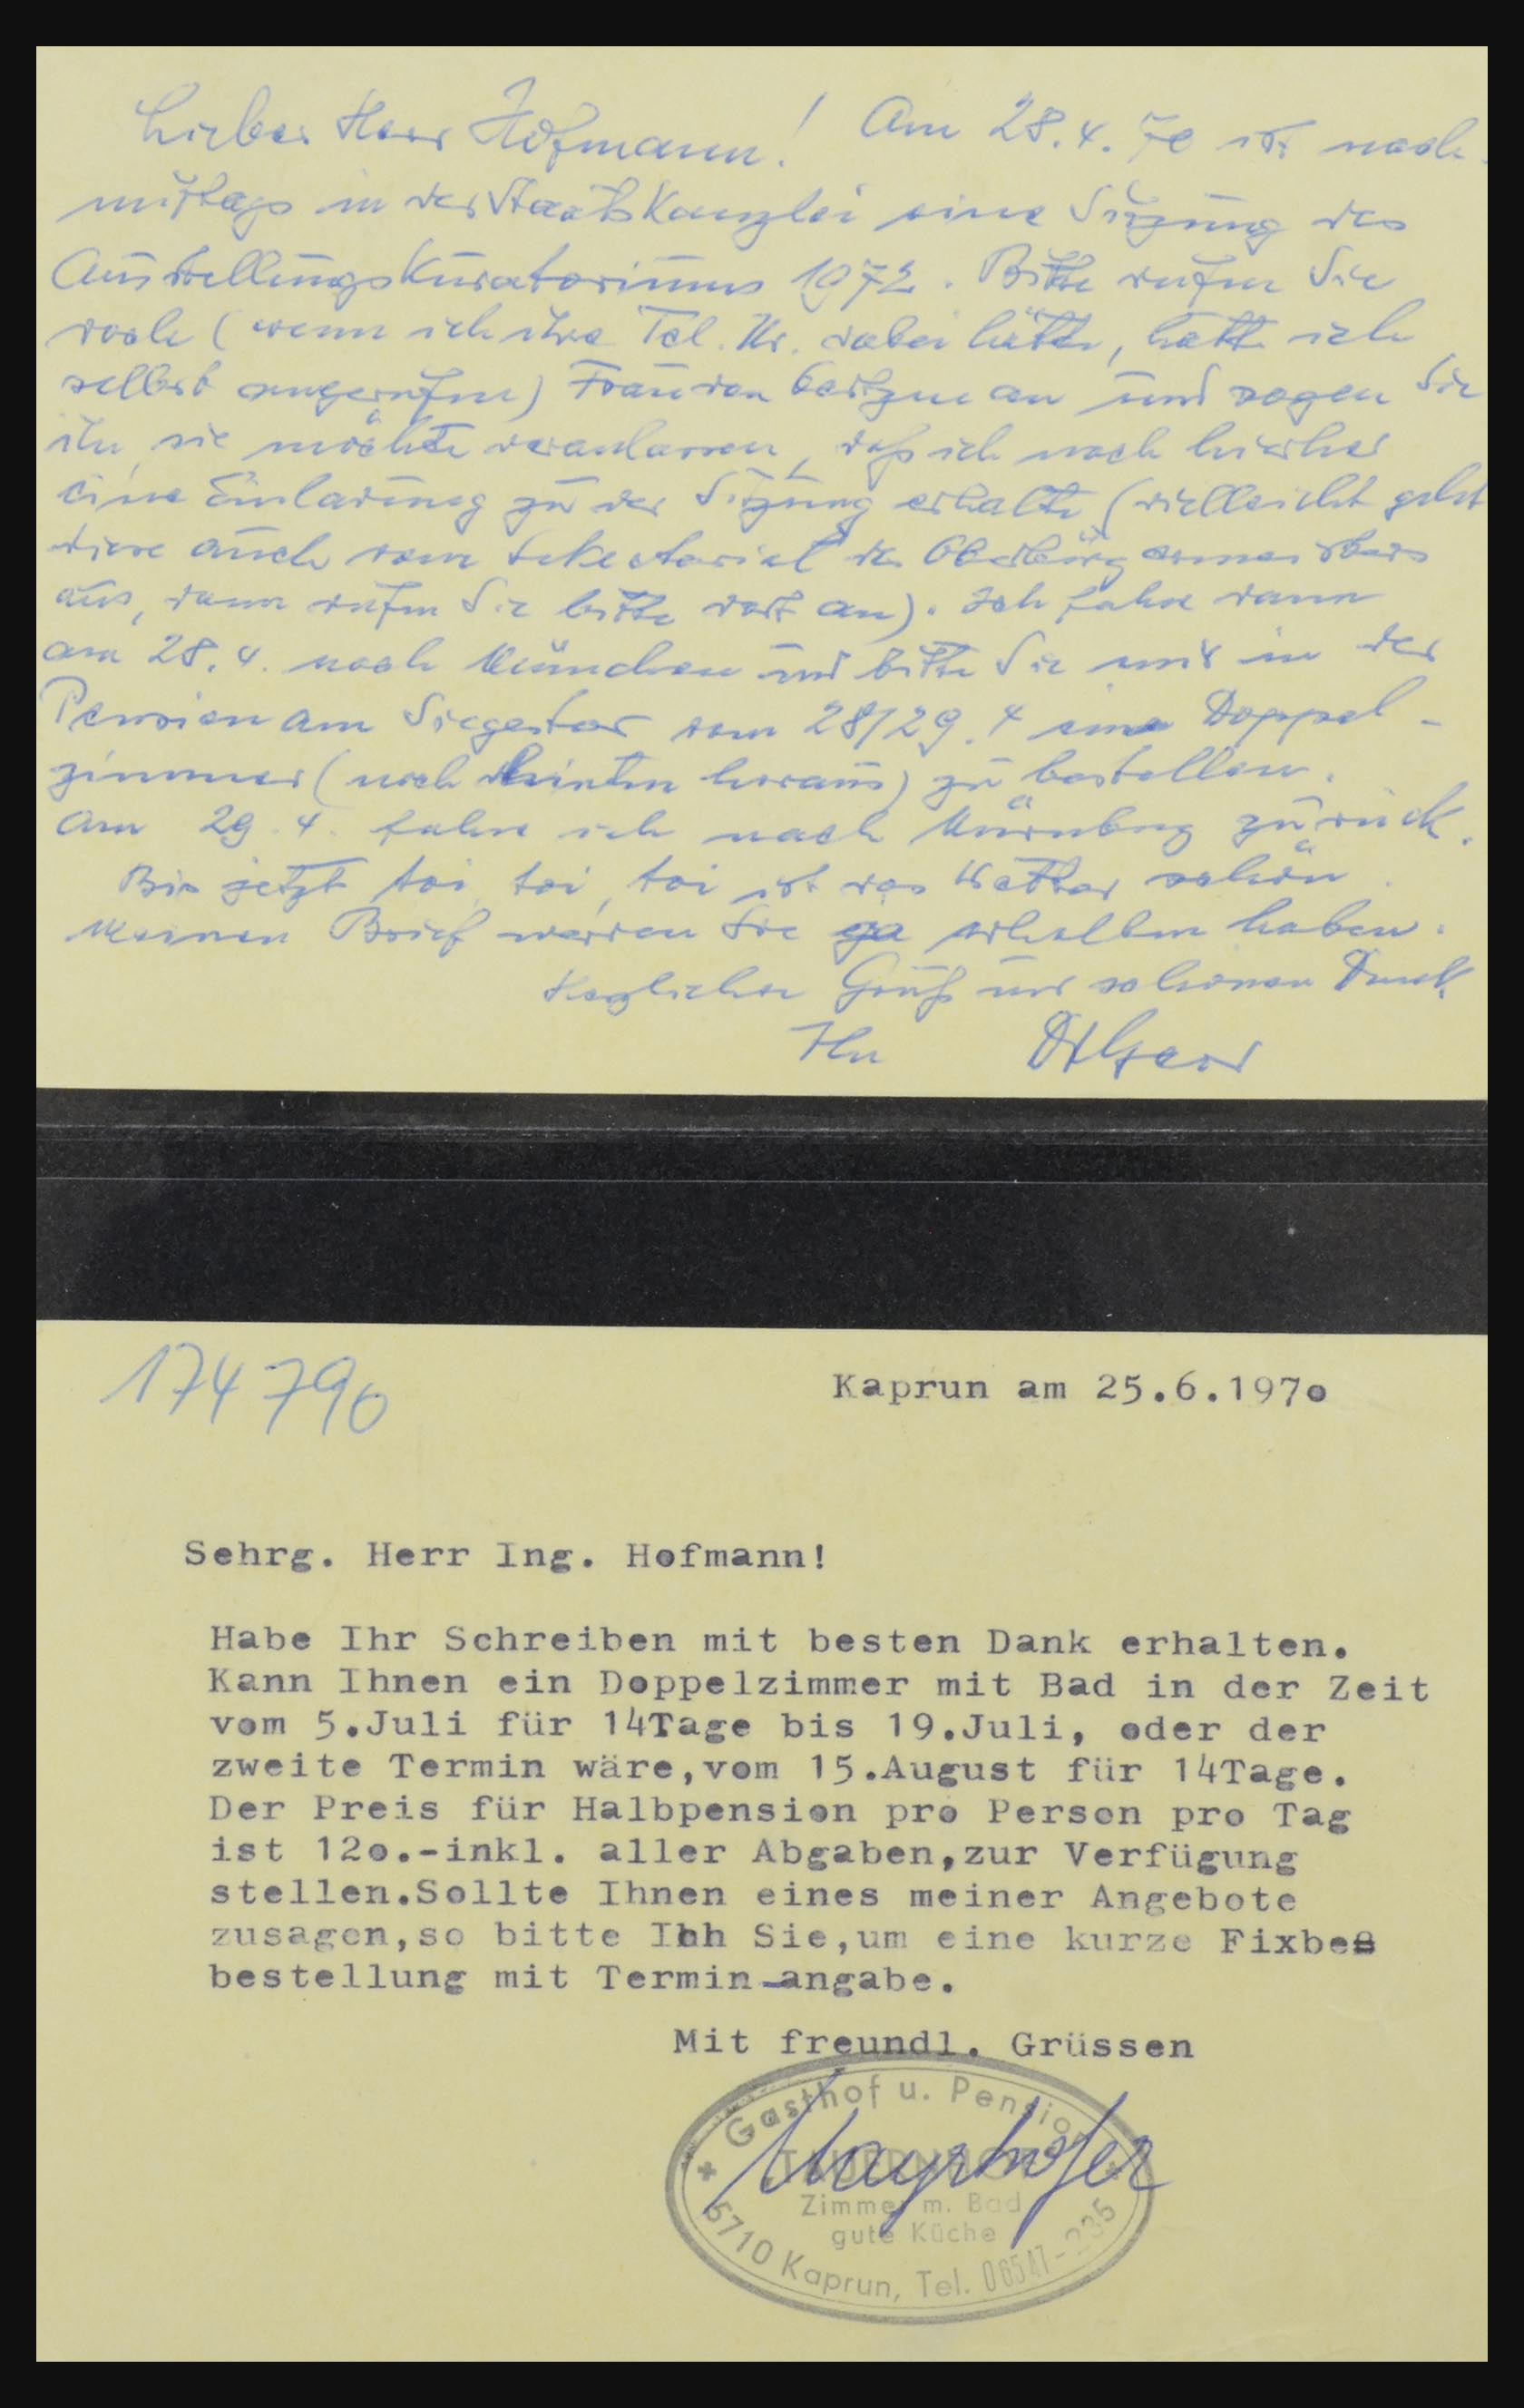 Lieber Herr Hofmann! Am 28.4.70 ist nach-
mittags in der Staatskanzlei eine Sitzung des
Ausstellungskuratoriums 1972. Bitte rufen Sie
doch (wenn ich ihre Tel. Nr. dabei hätte, hätte ich
selbst angerufen) Frau von an und sagen Sie
ihr, sie möchte veranlassen, daß ich noch hierher
eine Einladung zu der Sitzung erhalte (vielleicht geht
diese auch vom Sekretariat des Oberbürgermeisters
aus, dann rufen Sie bitte dort an). Ich fahre dann
am 28.4. nach München und bitte Sie mir in der
Pension am Siegestor vom 28/29.4 ein Doppel-
zimmer (nach hinten heraus) zu bestellen.
Am 29.4. fahre ich nach Nürnberg zurück.
Bis jetzt toi, toi, toi ist das Wetter schön.
Meinen Brief werden Sie ja erhalten haben.
Herzlichen Gruß und schönen Dank
Ihr
174790
Kaprun am 25.6.197o
Sehrg. Herr Ing. Hofmann!
Habe Ihr Schreiben mit besten Dank erhalten.
Kann Ihnen ein Doppelzimmer mit Bad in der Zeit
vom 5.Juli für 14Tage bis 19.Juli, oder der
zweite Termin wäre,vom 15.August für 14Tage.
Der Preis für Halbpension pro Person pro Tag
ist 12o.-inkl. aller Abgaben,zur Verfügung
stellen.Sollte Ihnen eines meiner Angebote
zusagen,so bitte Ihh Sie,um eine kurze Fixbes
bestellung mit Termin-angabe.
Mit freundl. Grüssen
Gasthof u. Pension
Mayrhofer
Zimmer m. Bad
gute Küche
5710 Kaprun, Tel. 06547-235